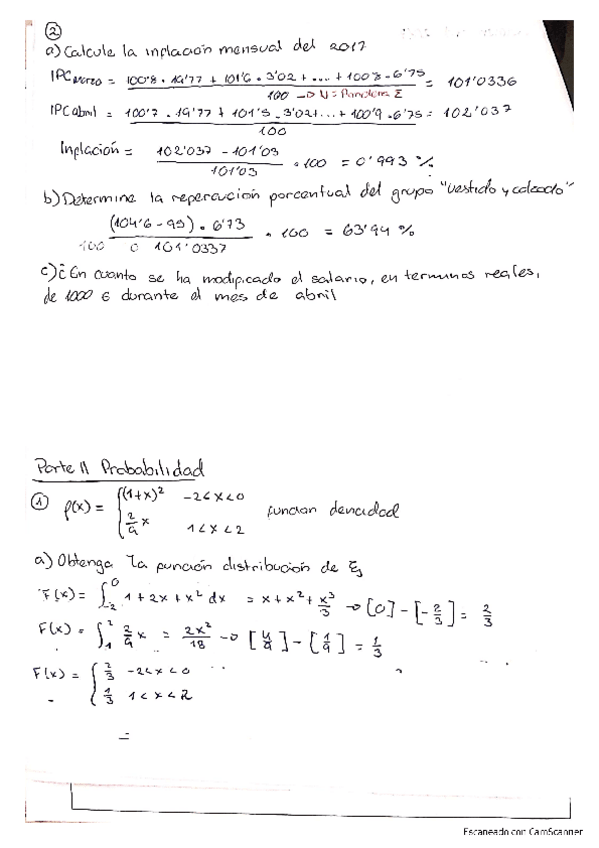 ②
a) Calcule la inflación mensual del 2017
IPC marzo = 100'8 . 19'77 + 101'6 . 3'02 + ... + 100'8 - 6'75 / 100 → N = Pondera Σ = 101'0336
IPC abril = 100'7 . 19'77 + 101'5 . 3'02 + ... + 100'9 . 6'75 / 100 = 102'037
Inflación = 102'037 - 101'03 / 101'03 . 100 = 0'993 %
b) Determine la repercución porcentual del grupo "vestido y calzado"
(104'6 - 99) . 6'73 / 100 0 101'0337 . 100 = 63'94 %
c) ¿En cuanto se ha modificado el salario, en terminos reales,
de 1000 € durante el mes de abril
Parte II Probabilidad
① f(x) = { (1+x)² -2<x<0
2/9 x 1<x<2 función dencidad
a) Obtenga la función distribución de ξ
F(x) = ∫₋₂⁰ 1 + 2x + x² dx = x + x² + x³/3 → [0] - [-2/3] = 2/3
F(x) = ∫₁² 2/9 x = 2x²/18 → [4/9] - [1/9] = 1/3
F(x) = { 2/3 -2<x<0
1/3 1<x<2
=
Escaneado con CamScanner